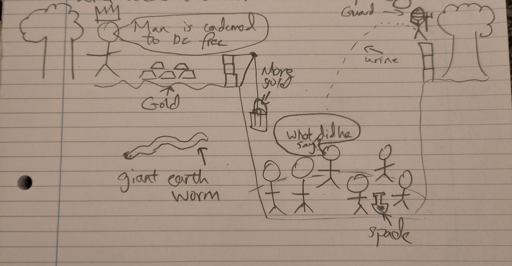 Guard
Man is condemned
to be free
urine
More
gold
Gold
What did he
say?
giant earth
worm
spade